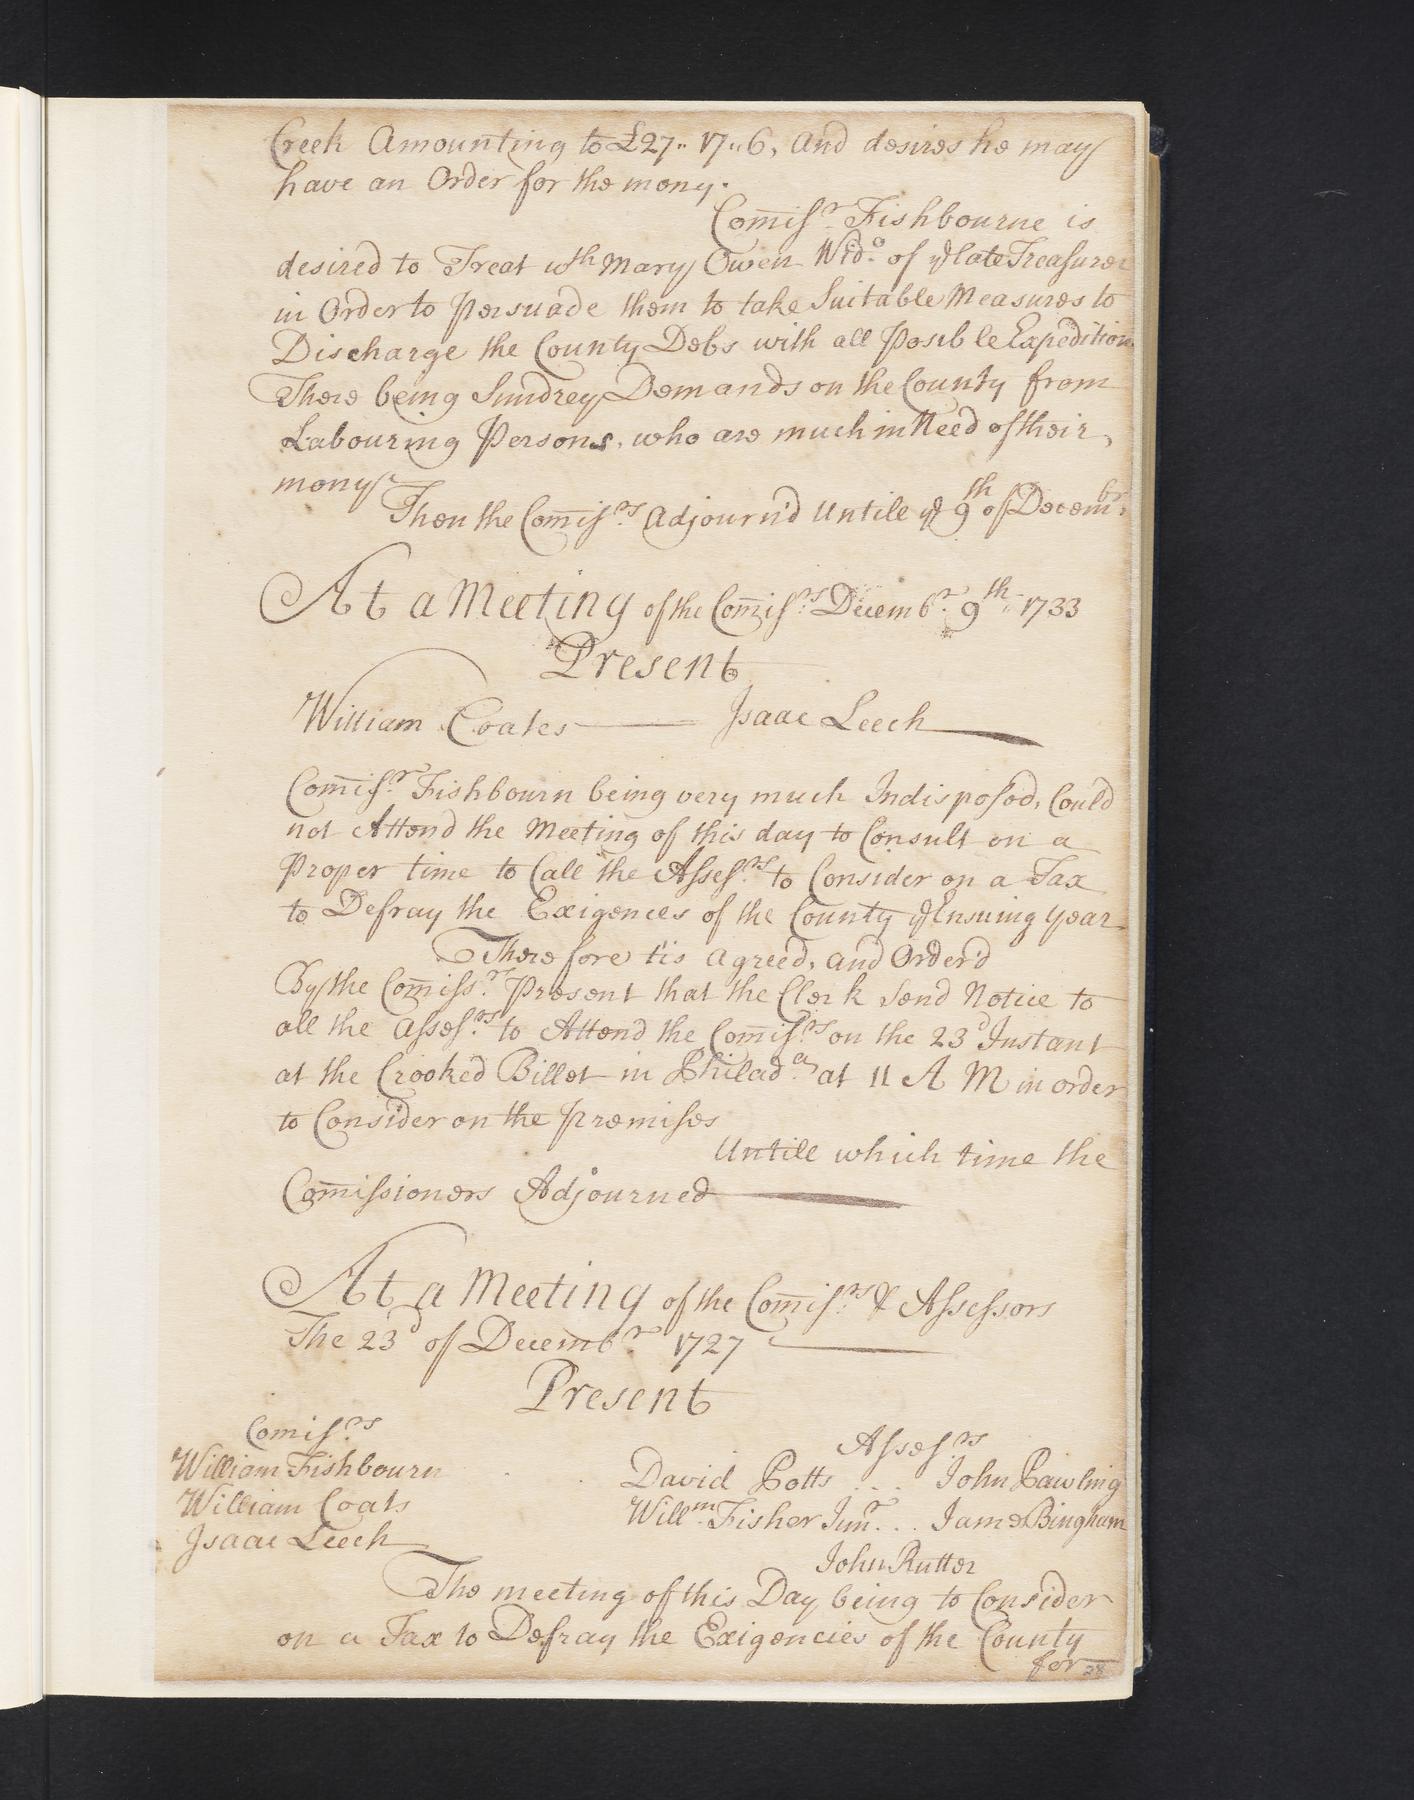 Creek Amounting to £27,, 17,, 6, and desires he may
have an Order for the mony.
Comiſr. Fishbourne is
desired to Treat wth Mary Owen Wido. of ye late Treaſurer
in Order to Persuade them to take Suitable Measures to
Discharge the County Debs with all Posible Expedition
There being Sundrey Demands on the County from
Labouring Persons, who are much in Need of their
mony
Then the Comiſrs. Adjourn'd Untile ye 9th of Decembr.
At a Meeting of the Comiſrs. Decembr. 9th 1733
Present
William Coates Isaac Leech
Comiſr. Fishbourn being very much Indispoſed, Could
not Attend the Meeting of this day to Consult on a
Proper time to Call the Aſſeſrs. to Consider on a Tax
to Defray the Exigences of the County ye Ensuing year
Therefore tis agreed, and Order'd
By the Comiſsrs. Present that the Clerk Send Notice to
all the aſſeſrs. to Attend the Comiſrs. on the 23d Instant
at the Crooked Billet in Philada. at 11 A M in order
to Consider on the Premiſes
Untill which time the
Comiſsioners Adjourned
At a Meeting of the Comiſrs. & Aſseſsors
The 23d of Decembr. 1727
Present
Comiſrs.
Aſseſrs.
William Fishbourn David Potts ... John Pawling
William Coats Willm. Fisher Junr. .. James Bingham
Isaac Leech
John Rutter
The meeting of this Day being to Consider
on a Tax to Defray the Exigencies of the County
for
28